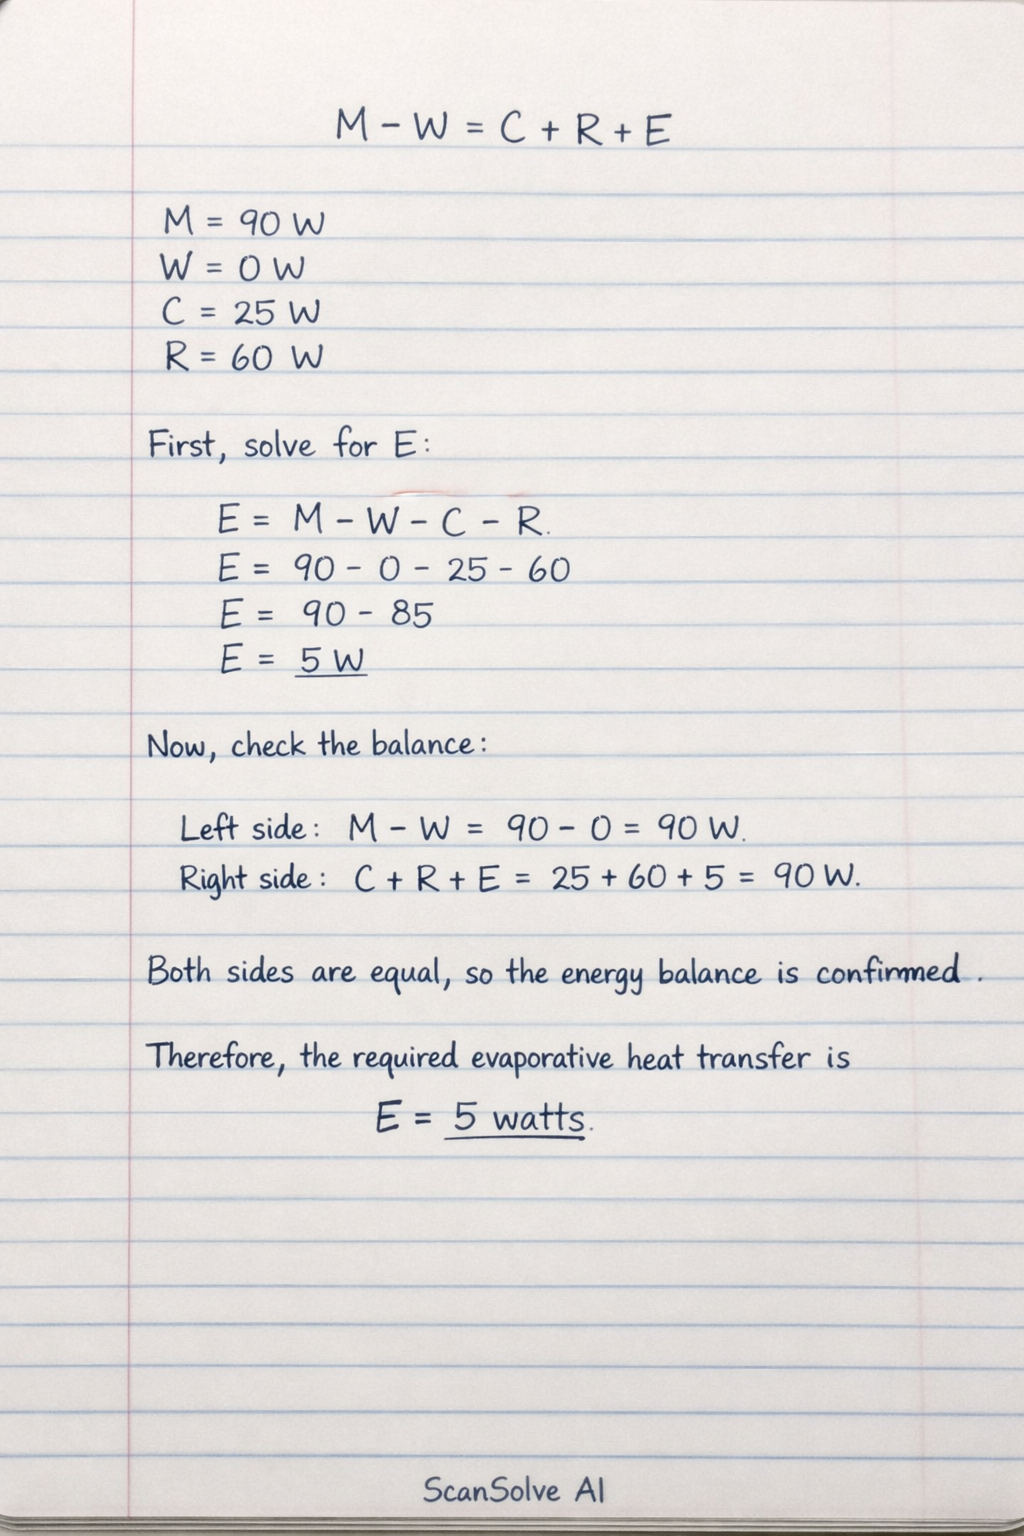 M - W = C + R + E
M = 90 W
W = 0 W
C = 25 W
R = 60 W
First, solve for E:
E = M - W - C - R.
E = 90 - 0 - 25 - 60
E = 90 - 85
E = 5 W
Now, check the balance:
Left side: M - W = 90 - 0 = 90 W.
Right side: C + R + E = 25 + 60 + 5 = 90 W.
Both sides are equal, so the energy balance is confirmed.
Therefore, the required evaporative heat transfer is
E = 5 watts.
ScanSolve AI